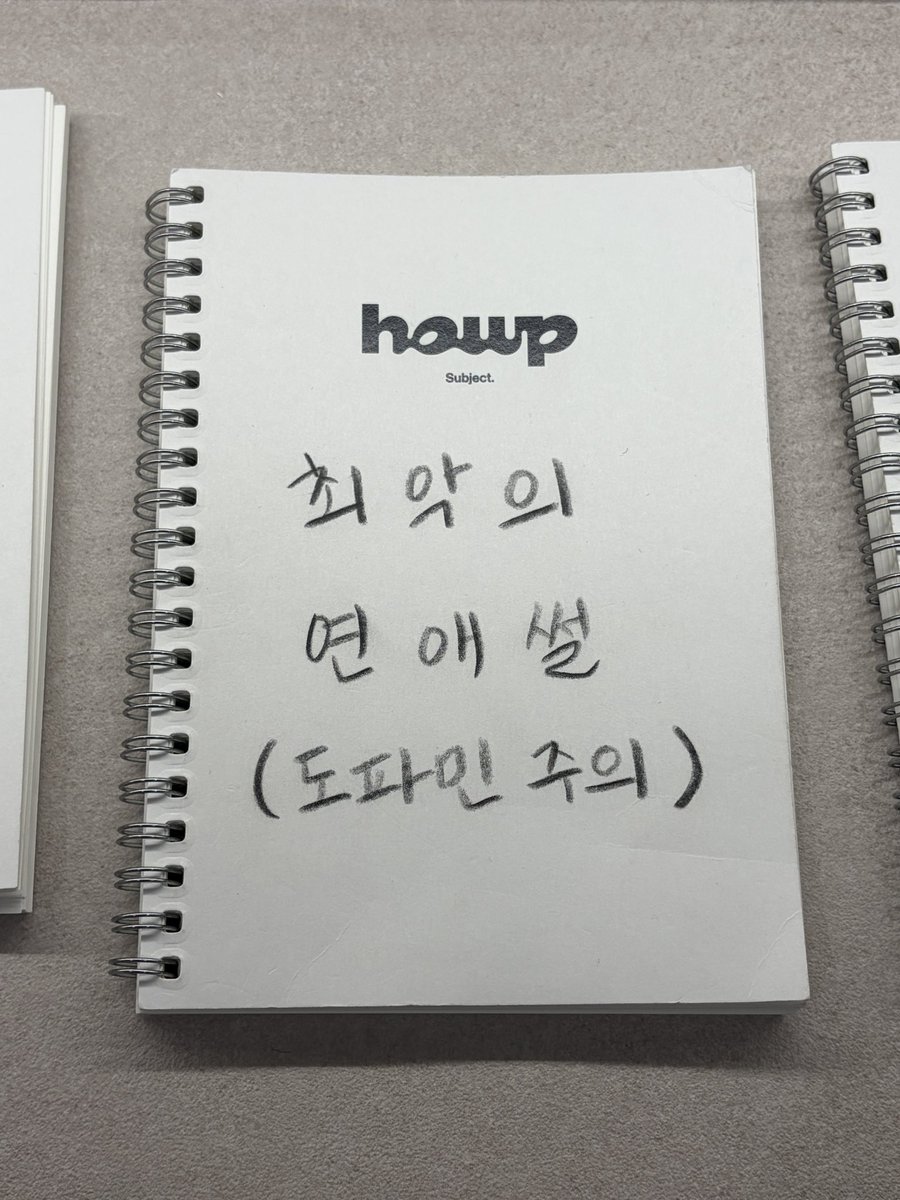 howp
Subject.
최악의
연애썰
(도파민 주의)